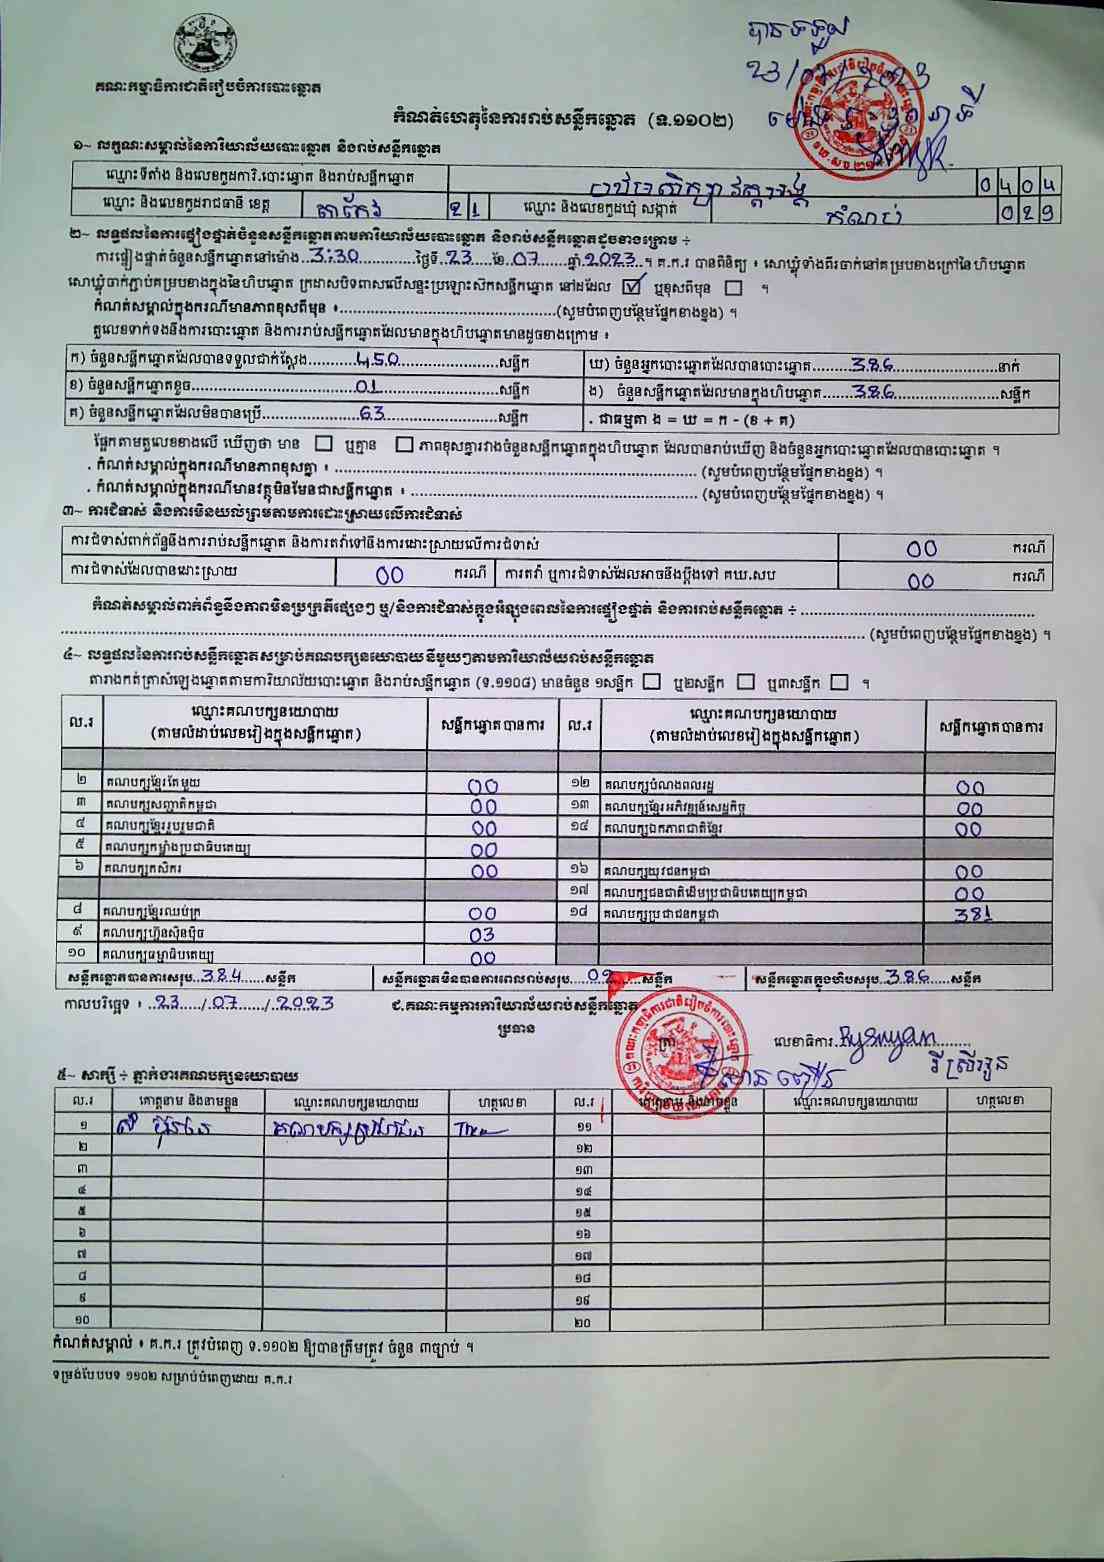 គណៈកម្មាធិការជាតិរៀបចំការបោះឆ្នោត
បានទទួល
23/07/2023
កំណត់ហេតុនៃការរាប់សន្លឹកឆ្នោត (ទ.១១០២)
១~ លក្ខណៈសម្គាល់នៃការិយាល័យបោះឆ្នោត និងរាប់សន្លឹកឆ្នោត
ឈ្មោះទីតាំង និងលេខកូដការិ.បោះឆ្នោត និងរាប់សន្លឹកឆ្នោត 0404
ឈ្មោះ និងលេខកូដរាជធានី ខេត្ត តាកែវ 21 ឈ្មោះ និងលេខកូដឃុំ សង្កាត់ កំណប់ 029
២~ លទ្ធផលនៃការផ្ទៀងផ្ទាត់ចំនួនសន្លឹកឆ្នោតតាមការិយាល័យបោះឆ្នោត និងរាប់សន្លឹកឆ្នោតដូចខាងក្រោម ÷
ការផ្ទៀងផ្ទាត់ចំនួនសន្លឹកឆ្នោតនៅម៉ោង..3:30..........ថ្ងៃទី..23.....ខែ.07......ឆ្នាំ.2023..។ គ.ក.រ បានពិនិត្យ ៖ សោឃ្លុំទាំងពីរចាក់នៅគម្របខាងក្រៅនៃហិបឆ្នោត
សោឃ្លុំចាក់ភ្ជាប់គម្របខាងក្នុងនៃហិបឆ្នោត ក្រដាសបិទពាសលើសន្ទះប្រឡោះស៊កសន្លឹកឆ្នោត នៅដដែល ☑ ឬខុសពីមុន ☐ ។
កំណត់សម្គាល់ក្នុងករណីមានភាពខុសពីមុន ៖......................................(សូមបំពេញបន្ថែមផ្នែកខាងខ្នង) ។
តួលេខទាក់ទងនឹងការបោះឆ្នោត និងការរាប់សន្លឹកឆ្នោតដែលមានក្នុងហិបឆ្នោតមានដូចខាងក្រោម ៖
ក) ចំនួនសន្លឹកឆ្នោតដែលបានទទួលជាក់ស្តែង..........450....................សន្លឹក ឃ) ចំនួនអ្នកបោះឆ្នោតដែលបានបោះឆ្នោត........386....................នាក់
ខ) ចំនួនសន្លឹកឆ្នោតខូច..............................01........................សន្លឹក ង) ចំនួនសន្លឹកឆ្នោតដែលមានក្នុងហិបឆ្នោត.......386....................សន្លឹក
គ) ចំនួនសន្លឹកឆ្នោតដែលមិនបានប្រើ..................63.......................សន្លឹក . ជាធម្មតា ង = ឃ = ក - (ខ + គ)
ផ្អែកតាមតួលេខខាងលើ ឃើញថា មាន ☐ ឬគ្មាន ☐ ភាពខុសគ្នារវាងចំនួនសន្លឹកឆ្នោតក្នុងហិបឆ្នោត ដែលបានរាប់ឃើញ និងចំនួនអ្នកបោះឆ្នោតដែលបានបោះឆ្នោត ។
. កំណត់សម្គាល់ក្នុងករណីមានភាពខុសគ្នា ៖ ........................................ (សូមបំពេញបន្ថែមផ្នែកខាងខ្នង) ។
. កំណត់សម្គាល់ក្នុងករណីមានវត្ថុមិនមែនជាសន្លឹកឆ្នោត ៖ .............................. (សូមបំពេញបន្ថែមផ្នែកខាងខ្នង) ។
៣~ ការជំទាស់ និងការមិនយល់ព្រមតាមការដោះស្រាយលើការជំទាស់
ការជំទាស់ពាក់ព័ន្ធនឹងការរាប់សន្លឹកឆ្នោត និងការតវ៉ាទៅនឹងការដោះស្រាយលើការជំទាស់ 00 ករណី
ការជំទាស់ដែលបានដោះស្រាយ 00 ករណី ការតវ៉ា ឬការជំទាស់ដែលអាចនឹងប្តឹងទៅ គឃ.សប 00 ករណី
កំណត់សម្គាល់ពាក់ព័ន្ធនឹងភាពមិនប្រក្រតីផ្សេងៗ ឬ/និងការជំទាស់ក្នុងអំឡុងពេលនៃការផ្ទៀងផ្ទាត់ និងការរាប់សន្លឹកឆ្នោត ÷ ..............................
........................................................................ (សូមបំពេញបន្ថែមផ្នែកខាងខ្នង) ។
៤~ លទ្ធផលនៃការរាប់សន្លឹកឆ្នោតសម្រាប់គណបក្សនយោបាយនីមួយៗតាមការិយាល័យរាប់សន្លឹកឆ្នោត
តារាងកត់ត្រាសំឡេងឆ្នោតតាមការិយាល័យបោះឆ្នោត និងរាប់សន្លឹកឆ្នោត (ទ.១១០៨) មានចំនួន ១សន្លឹក ☐ ឬ២សន្លឹក ☐ ឬ៣សន្លឹក ☐ ។
ល.រ ឈ្មោះគណបក្សនយោបាយ (តាមលំដាប់លេខរៀងក្នុងសន្លឹកឆ្នោត) សន្លឹកឆ្នោតបានការ ល.រ ឈ្មោះគណបក្សនយោបាយ (តាមលំដាប់លេខរៀងក្នុងសន្លឹកឆ្នោត) សន្លឹកឆ្នោតបានការ
២ គណបក្សខ្មែរតែមួយ 00 ១២ គណបក្សបំណងពលរដ្ឋ 00
៣ គណបក្សសញ្ជាតិកម្ពុជា 00 ១៣ គណបក្សខ្មែរអភិវឌ្ឍន៍សេដ្ឋកិច្ច 00
៤ គណបក្សខ្មែររួបរួមជាតិ 00 ១៤ គណបក្សឯកភាពជាតិខ្មែរ 00
៥ គណបក្សកម្លាំងប្រជាធិបតេយ្យ 00
៦ គណបក្សកសិករ 00 ១៦ គណបក្សយុវជនកម្ពុជា 00
១៧ គណបក្សជនជាតិដើមប្រជាធិបតេយ្យកម្ពុជា 00
៨ គណបក្សខ្មែរឈប់ក្រ 00 ១៨ គណបក្សប្រជាជនកម្ពុជា 381
៩ គណបក្សហ៊្វុនស៊ិនប៉ិច 03
១០ គណបក្សធម្មាធិបតេយ្យ 00
សន្លឹកឆ្នោតបានការសរុប..384......សន្លឹក សន្លឹកឆ្នោតមិនបានការពេលរាប់សរុប.....02......សន្លឹក សន្លឹកឆ្នោតក្នុងហិបសរុប..386.....សន្លឹក
កាលបរិច្ឆេទ ៖ ..23...../.07...../..2023 ជ.គណៈកម្មការការិយាល័យរាប់សន្លឹកឆ្នោត
ប្រធាន
ត្រា លេខាធិការ
រី ស្រីអូន
៥~ សាក្សី ÷ ភ្នាក់ងារគណបក្សនយោបាយ
ល.រ គោត្តនាម និងនាមខ្លួន ឈ្មោះគណបក្សនយោបាយ ហត្ថលេខា ល.រ គោត្តនាម និងនាមខ្លួន ឈ្មោះគណបក្សនយោបាយ ហត្ថលេខា
១ គណបក្សប្រជាជន ១១
២ ១២
៣ ១៣
៤ ១៤
៥ ១៥
៦ ១៦
៧ ១៧
៨ ១៨
៩ ១៩
១០ ២០
កំណត់សម្គាល់ ៖ គ.ក.រ ត្រូវបំពេញ ទ.១១០២ ឱ្យបានត្រឹមត្រូវ ចំនួន ៣ច្បាប់ ។
ទម្រង់បែបបទ ១១០២ សម្រាប់បំពេញដោយ គ.ក.រ